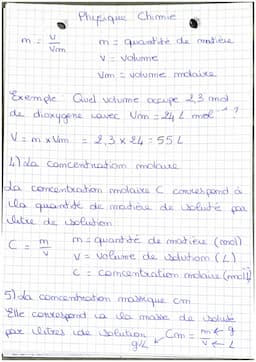 Physique Chimie
m = V/Vm    m = quantité de matière
V = volume
Vm = volume molaire
Exemple Quel volume occupe 2,3 mol
de dioxygène avec Vm = 24 L mol⁻¹ ?
V = m x Vm = 2,3 x 24 = 55 L
4) La concentration molaire
La concentration molaire C correspond à
la quantité de matière de soluté par
litre de solution
C = m/V    m = quantité de matière (mol)
V = volume de solution (L)
C = concentration molaire (mol/L)
5) La concentration massique Cm
Elle correspond à la masse de soluté
par litres de solution    Cm = m ← g
g/L    V ← L